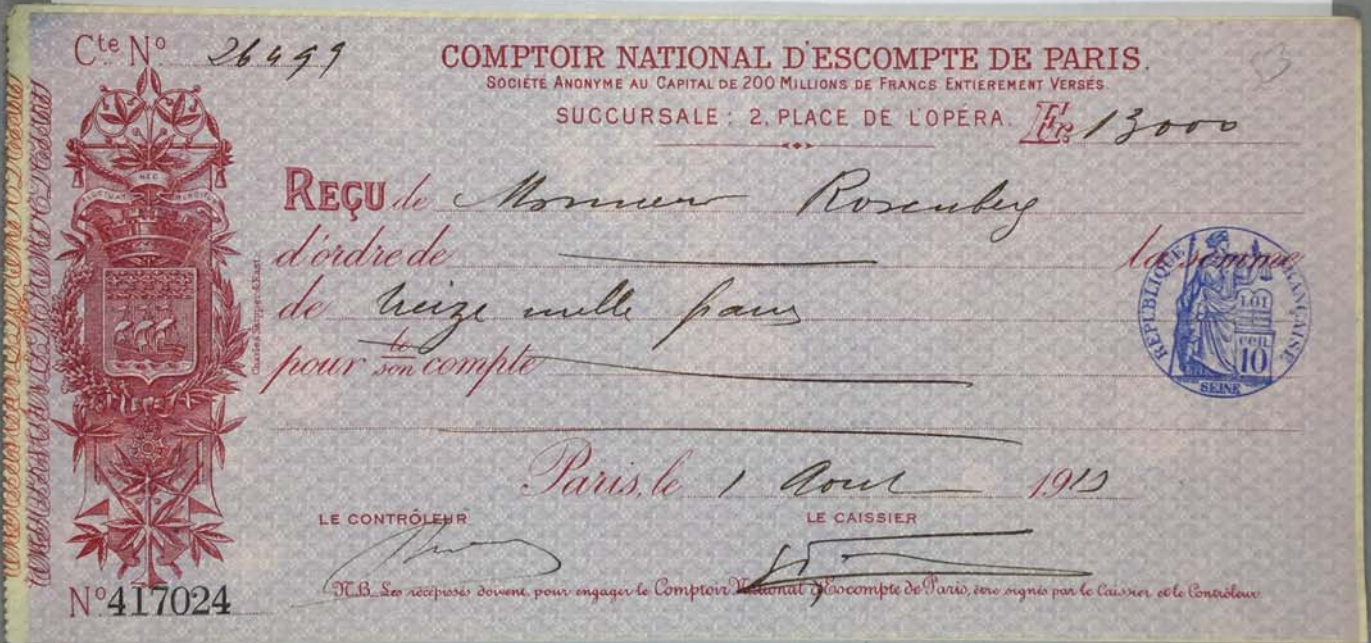 Cte No 26499
COMPTOIR NATIONAL D'ESCOMPTE DE PARIS.
SOCIÉTÉ ANONYME AU CAPITAL DE 200 MILLIONS DE FRANCS ENTIÈREMENT VERSÉS.
SUCCURSALE : 2, PLACE DE L'OPÉRA. Fr. 13000
REÇU de Monsieur Rosenberg
d'ordre de la somme
de treize mille francs
pour le/son compte
RÉPUBLIQUE FRANÇAISE
LOI
cen.
10
SEINE
Paris, le 1 Aout
LE CONTRÔLEUR LE CAISSIER
N.B. Les récépissés doivent, pour engager le Comptoir National d'Escompte de Paris, être signés par le Caissier et le Contrôleur.
No 417024